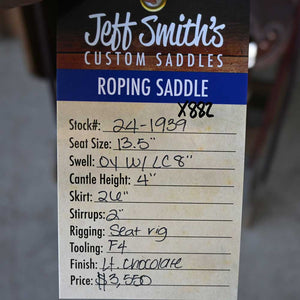 Jeff Smith's
CUSTOM SADDLES
ROPING SADDLE
X882
Stock#: 24-1939
Seat Size: 13.5"
Swell: OY W/ LC 8"
Cantle Height: 4"
Skirt: 26"
Stirrups: 2"
Rigging: Seat rig
Tooling: F4
Finish: Lt. Chocolate
Price: $3,550